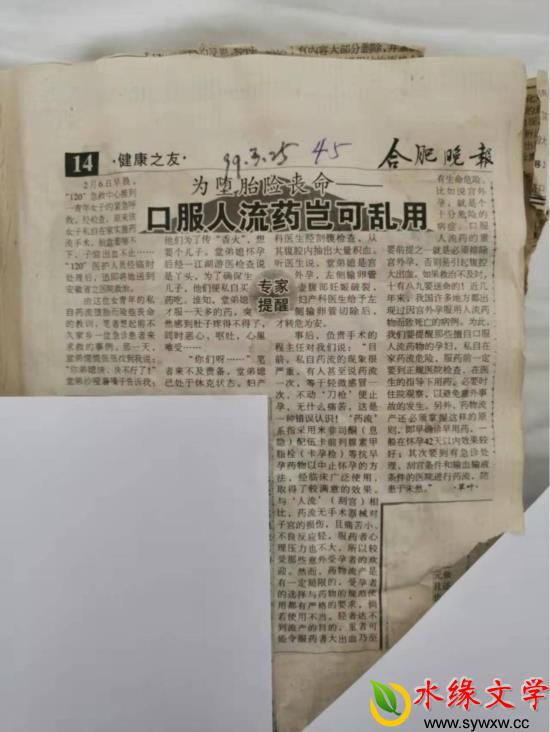 有内容大部分删除,并
14
·健康之友·
99.3.25 45
合肥晚报
为堕胎险丧命——
口服人流药岂可乱用
专家
提醒
2月6日早晨,
“120”急救中心接到
一青年女子的紧急呼
救,经检查,原来该
女子私自在家实施药
流手术,胎盘着床不
下,子宫出血不止……
“120”医护人员经临时
处理后,迅即将她送到
安徽省立医院救治。
由这位女青年的私
自药流堕胎而险些丧命
的教训,笔者想起前不
久家乡一位急诊患者来
求救的事例。那一天,
堂弟慌慌张张找到我说:
“你弟媳快、快不行了!”
堂弟沙哑着嗓子告诉我:
他们为了传“香火”,想
要个儿子。堂弟媳怀孕
后经一江湖游医检查说
是丫头,为了确保生
儿子,他们便私自买
药吃。谁知,堂弟媳
才服一天多的药,突
然感到肚子疼得不得了,
同时恶心,呕吐,心里
难受……
“你们呀……”笔
者来不及责备,堂弟媳
已处于休克状态。妇产
科医生经剖腹检查,从
其腹腔内抽出大量积血。
听医生说,堂弟媳是宫
外孕,左侧输卵管
壶腹部妊娠破裂,
妇产科医生给予左
侧输卵管切除后,
才转危为安。
事后,负责手术的
程主任对我们说:“目
前,私自药流的现象很
严重,有人甚至说药流
一次,等于轻微感冒一
次,不动‘刀枪’便止
孕,无什么痛苦,这是
一种错误认识!”“药流”
系指采用米非司酮(息
隐)配伍卡前列腺素甲
脂栓(卡孕栓)等抗早
孕药物以中止怀孕的方
法,经临床广泛使用,
取得了较满意的效果。
与‘人流’(刮宫)相
比,药流无手术器械对
子宫的损伤,且痛苦小、
不良反应轻,服药者心
理压力也不大,所以较
受那些意外受孕者的欢
迎。然而,药物流产是
有一定局限的,受孕者
的选择与药物的规范使
用都有严格的要求,倘
若使用不当,轻者达不
到流产的目的,重者可
能令服药者大出血乃至
有生命危险。
比如说宫外
孕,就是个
十分危险的
病症。口服
人流药的重
要前提之一就是必须排除
宫外孕,否则易引起腹腔
大出血,如果救治不及时,
十有八九要送命的!近几
年来,我国许多地方都出
现过因宫外孕服用人流药
物而致死亡的病例。为此,
我们要提醒那些擅自口服
人流药物的孕妇,私自在
家药流危险,服药前一定
要到正规医院检查,在医
生的指导下用药。必要时
住院观察,以避免意外事
故的发生。另外,药物流
产还必须掌握这样的原
则,即早确诊早用药,一
般在怀孕42天以内效果较
好;其次要到有急诊处
理、刮宫条件和输血输液条
件的医院进行药流,防
患于未然。” ·草叶·
水缘文学
www.sywxw.cc